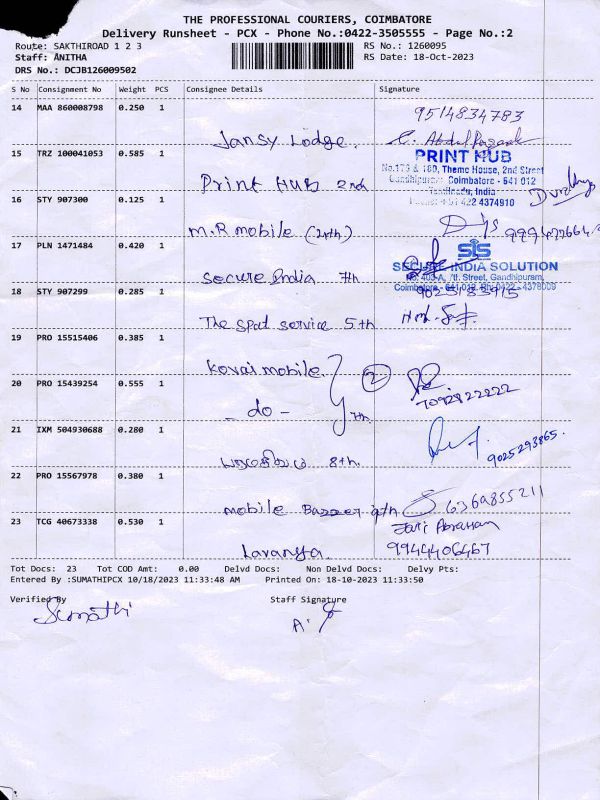 THE PROFESSIONAL COURIERS, COIMBATORE
Delivery Runsheet - PCX - Phone No.:0422-3505555 - Page No.:2
Route: SAKTHIROAD 1 2 3
RS No.: 1260095
Staff: ANITHA
RS Date: 18-Oct-2023
DRS No.: DCJB126009502
S No Consignment No Weight PCS Consignee Details Signature
14 MAA 860008798 0.250 1
9514834783
Jansy Lodge.
15 TRZ 100041053 0.585 1
PRINT HUB
Theme House, 2nd Street
Gandhipuram Coimbatore - 641 012
Tamilnadu, India
422 4374910
Print Hub 2nd
16 STY 907300 0.125 1
M.R mobile (2nth)
17 PLN 1471484 0.420 1
SIS
SECURE INDIA SOLUTION
7th. Street, Gandhipuram,
Secure India 7th
18 STY 907299 0.285 1
The Spot service 5th
19 PRO 15515406 0.385 1
Kovai mobile
2
20 PRO 15439254 0.555 1
7092822222
- do -
7th
21 IXM 504930688 0.280 1
9025293865.
8th.
22 PRO 15567978 0.380 1
6369855211
mobile Bazzer 9th
23 TCG 40673338 0.530 1
9944406467
Lavanya.
Tot Docs: 23 Tot COD Amt: 0.00 Delvd Docs: Non Delvd Docs: Delvy Pts:
Entered By :SUMATHIPCX 10/18/2023 11:33:48 AM Printed On: 18-10-2023 11:33:50
Verified By Staff Signature
Sumathi